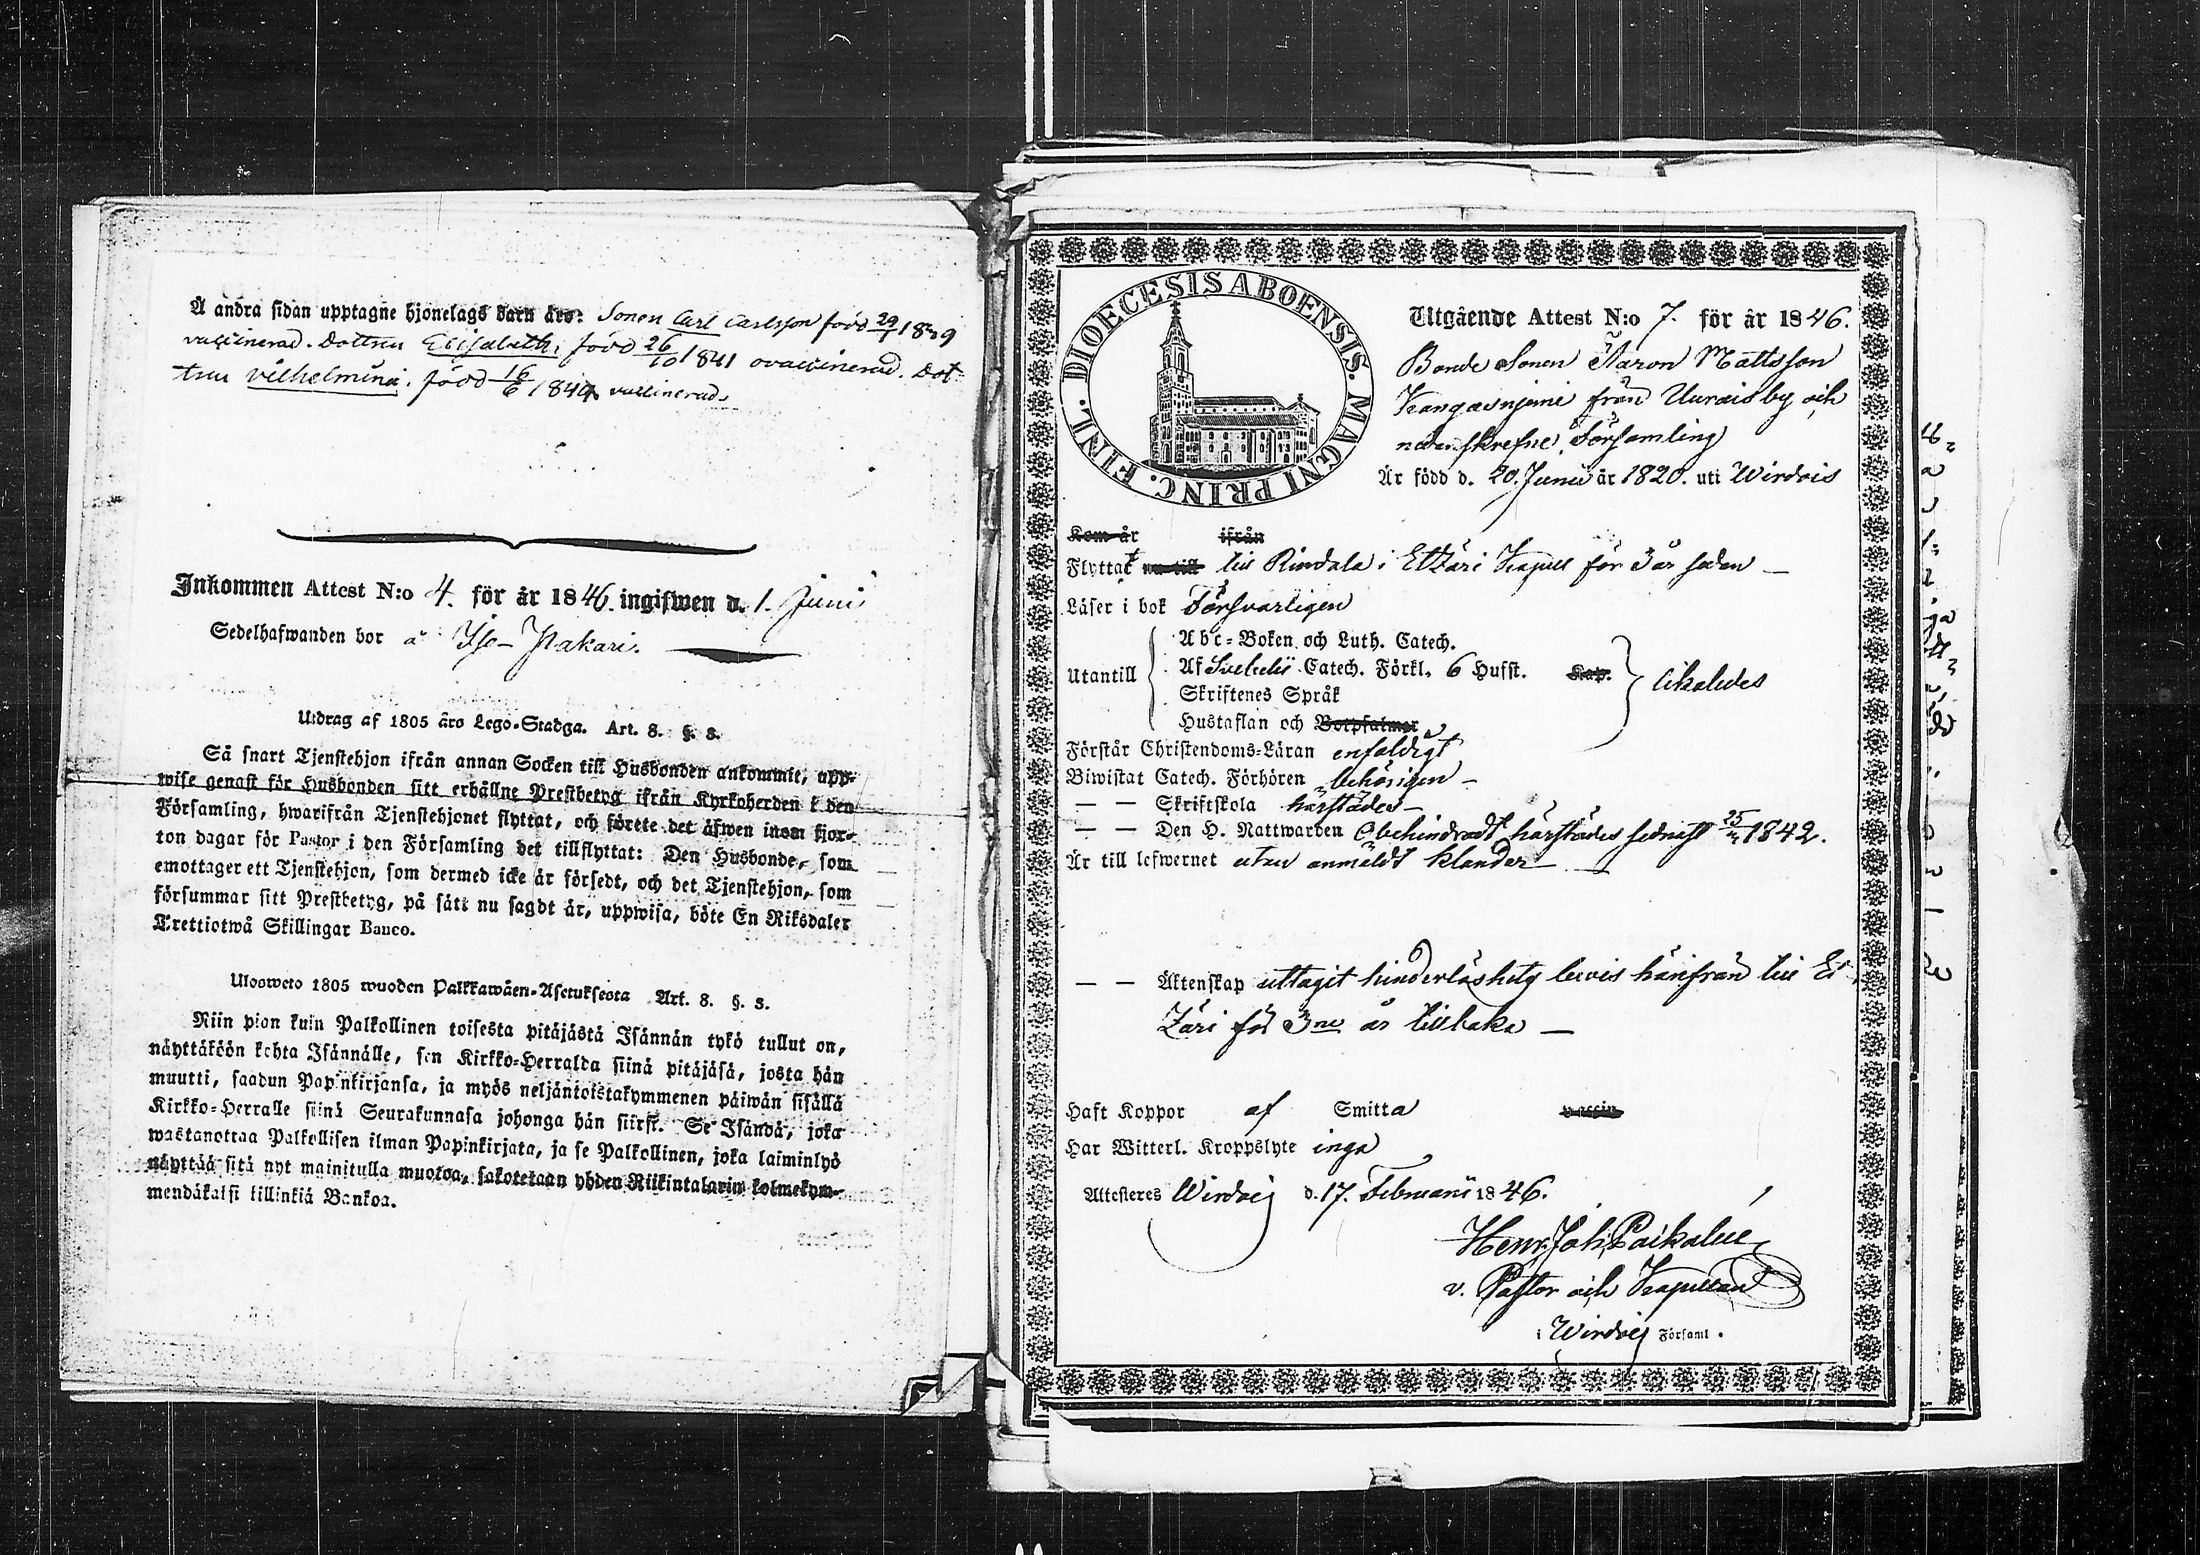 Å andra sidan upptagne hjonelags barn äro: Sonen Carl Carlsson född 29/1 1839
vaccinerad. Dottren Elisabeth, född 26/10 1841 ovaccinerad. Dot-
tren Vilhelmina. född 16/6 1844 vaccinerad.
Inkommen Attest N:o 4. för år 1846. ingifwen d. 1. Juni
Sedelhafwanden bor å Iso-Pakari.
Utdrag af 1805 års Lego-Stadga. Art. 8. §. 3.
Så snart Tjenstehjon ifrån annan Socken till Husbonden ankommit, upp-
wise genast för Husbonden sitt erhållne Prestbetyg ifrån Kyrkoherden i den
Församling, hwarifrån Tjenstehjonet flyttat, och förete det äfwen inom fjor-
ton dagar för Pastor i den Församling det tillflyttat: Den Husbonde, som
emottager ett Tjenstehjon, som dermed icke är försedt, och det Tjenstehjon, som
försummar sitt Prestbetyg, på sätt nu sagdt är, uppwisa, böte En Riksdaler
Trettiotwå Skillingar Banco.
Ulosweto 1805 wuoden Palkkawäen-Asetuksesta Art. 8. §. 3.
Niin pian kuin Palkollinen toisesta pitäjästä Isännän tykö tullut on,
näyttäköön kohta Isännälle, sen Kirkko-Herralda siinä pitäjäsä, josta hän
muutti, saadun Papinkirjansa, ja myös neljäntoistakymmenen päiwän sisällä
Kirkko-Herralle siinä Seurakunnasa johonga hän siirsi. Se Isändä, joka
wastanottaa Palkollisen ilman Papinkirjata, ja se Palkollinen, joka laiminlyö
näyttää sitä nyt mainitulla muotoa, sakotetaan yhden Riikintalarin kolmekym-
mendäkaksi killinkiä Bankoa.
DIOECESIS ABOENSIS. MAGNI PRINC. FINL.
Utgående Attest N:o 7. för år 1846.
Bonde Sonen Aaron Mattsson
Kangasniemi från Uurais by och
nedanskrefne Församling
Är född d. 20. Junii år 1820. uti Wirdois
Kom år ifrån
Flyttat nu till till Rindala i Etzäri Kapell för 3 år sedan —
Läser i bok Försvarligen
Utantill
Abc-Boken och Luth. Catech.
Af Svebelii Catech. Förkl. 6 Hufst. Kap.
Skriftenes Språk
Hustaflan och Botpsalmer
likaledes
Förstår Christendoms-Läran enfaldigt
Biwistat Catech. Förhören behörigen —
— — Skriftskola härstädes —
— — Den H. Nattwarden Obehindradt härstädes sednast 25/ 1842.
Är till lefwernet utan anmäldt klander —
— — Äktenskap uttagit hinderlöshets bevis härifrån till Et-
zäri för 3ne år tillbaka —
Haft Koppor af Smitta vaccin
Har Witterl. Kroppslyte inga
Attesteres Wirdois d. 17. Februarii 1846.
Henr. Joh.
v. Pastor och Kapellan
i Wirdois Församl.